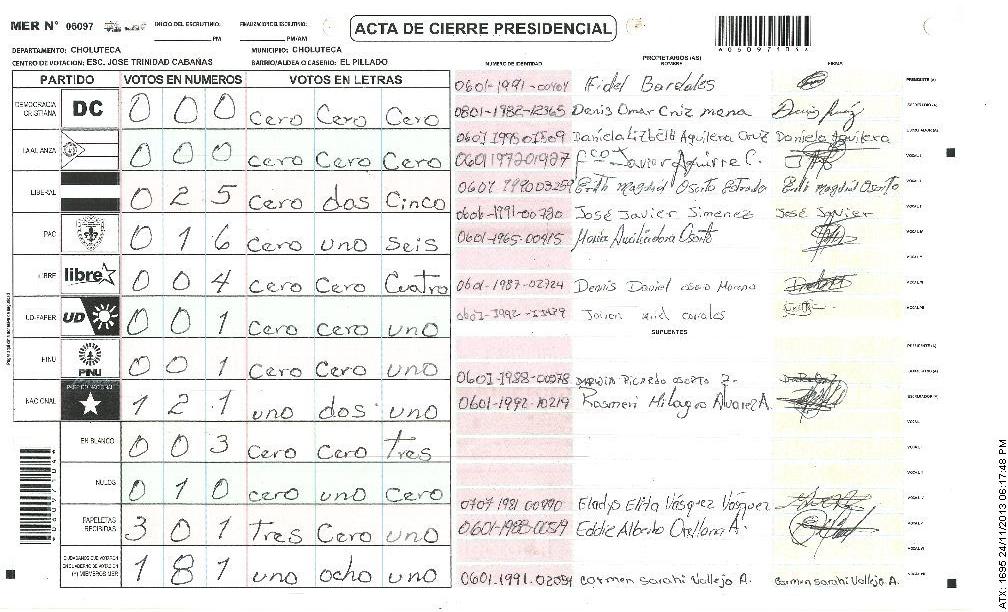 MER Nº 06097
INICIO DEL ESCRUTINIO: PM
FINALIZACION DEL ESCRUTINIO: PM/AM
ACTA DE CIERRE PRESIDENCIAL
DEPARTAMENTO: CHOLUTECA
MUNICIPIO: CHOLUTECA
CENTRO DE VOTACION: ESC. JOSE TRINIDAD CABAÑAS
BARRIO/ALDEA O CASERIO: EL PILLADO
PARTIDO VOTOS EN NUMEROS VOTOS EN LETRAS
DEMOCRACIA CRISTIANA DC 0 0 0 cero Cero Cero
LA ALIANZA 0 0 0 cero Cero Cero
LIBERAL 0 2 5 Cero dos Cinco
PAC 0 1 6 Cero uno seis
LIBRE libre 0 0 4 Cero Cero Cuatro
UD-FAPER UD 0 0 1 Cero Cero uno
PINU PINU 0 0 1 Cero Cero uno
NACIONAL PARTIDO NACIONAL 1 2 1 uno dos uno
EN BLANCO 0 0 3 cero Cero tres
NULOS 0 1 0 cero uno cero
PAPELETAS RECIBIDAS 3 0 1 Tres Cero uno
1 8 1 uno ocho uno
NUMERO DE IDENTIDAD
PROPIETARIOS (AS)
NOMBRE
FIRMA
Fidel Bardales
PRESIDENTE (A)
0801-1982-12365 Denis Omar Cruz mena
SECRETARIO (A)
Daniela Lizbeth Aguilera Cruz Daniela Aguilera
ESCRUTADOR (A)
0601197201987 Fco Javier Aguirre C.
VOCAL I
0606-1991-00780 José Javier Simenez José Javier
0601-1965-00415 María Auxiliadora Osorto
0601-1987-02724 Dennis Daniel osorto Moreno
SUPLENTES
PRESIDENTE (A)
0601-1988-00078 DARWIN RICARDO OSORTO
SECRETARIO (A)
0601-1992-10219 Rosmeri Milagro Alvarez A.
ESCRUTADOR (A)
0707 1981 00990 Eladys Elita Vásquez Vásquez
0601-1988-00519 Eddie Alberto Orellana A.
0601-1991-02084 Carmen Sarahi Vallejo A. Carmen Sarahi Vallejo A.
ATX: 1695 24/11/2013 06:17:48 PM